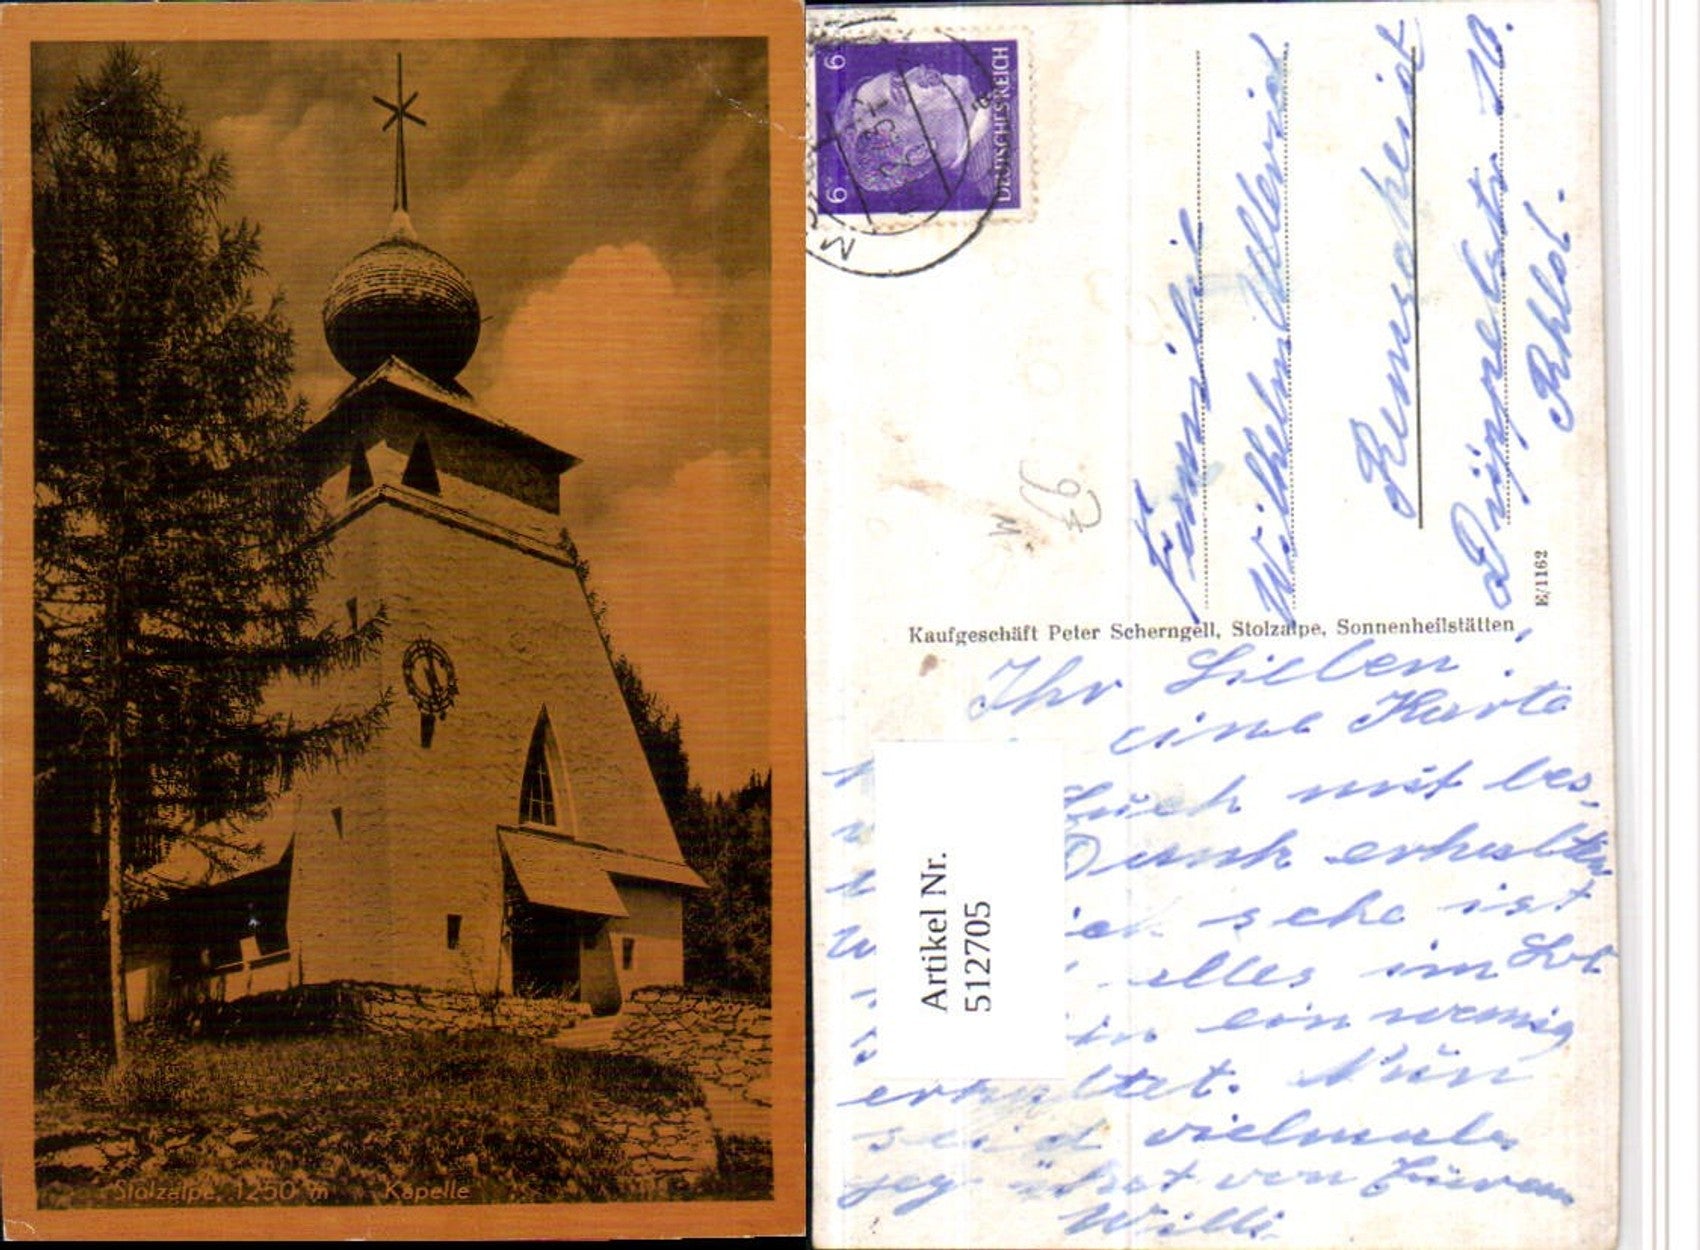 Stolzalpe, 1250 m Kapelle
6 6
DEUTSCHES REICH
Familie
Wilhelm
Remscheid
Rhld.
E/1162
Kaufgeschäft Peter Scherngell, Stolzalpe, Sonnenheilstätten
Ihr Lieben!
eine Karte
Euch mit bes.
Dank erhalten
ich sehe ist
alles im Lot
ein wenig
erkaltet. Nun
seid vielmals
gegrüßt von Eurem
Willi.
Artikel Nr.
512705